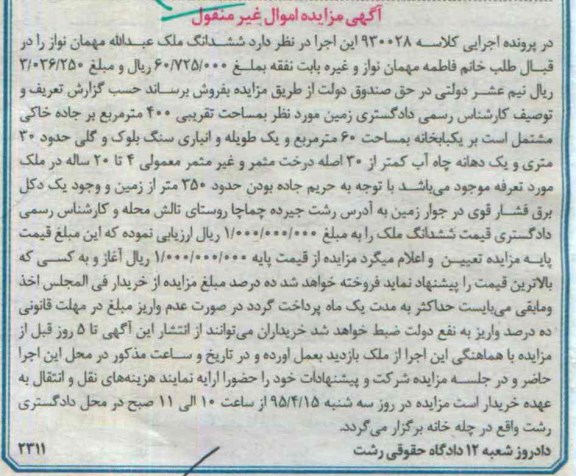 آگهی مزایده اموال غیر منقول
در پرونده اجرایی کلاسه ۹۳۰۰۲۸ این اجرا در نظر دارد ششدانگ ملک عبدالله مهمان نواز را در
قبال طلب خانم فاطمه مهمان نواز و غیره بابت نفقه بمبلغ ۶۰/۷۲۵/۰۰۰ ریال و مبلغ ۳/۰۳۶/۲۵۰
ریال نیم عشر دولتی در حق صندوق دولت از طریق مزایده بفروش برساند حسب گزارش تعریف و
توصیف کارشناس رسمی دادگستری زمین مورد نظر بمساحت تقریبی ۴۰۰ مترمربع بر جاده خاکی
مشتمل است بر یکبابخانه بمساحت ۶۰ مترمربع و یک طویله و انباری سنگ بلوک و گلی حدود ۳۰
متری و یک دهانه چاه آب کمتر از ۳۰ اصله درخت مثمر و غیر مثمر معمولی ۴ تا ۲۰ ساله در ملک
مورد تعرفه موجود می‌باشد با توجه به حریم جاده بودن حدود ۳۵۰ متر از زمین و وجود یک دکل
برق فشار قوی در جوار زمین به آدرس رشت جیرده چماچا روستای تالش محله و کارشناس رسمی
دادگستری قیمت ششدانگ ملک را به مبلغ ۱/۰۰۰/۰۰۰/۰۰۰ ریال ارزیابی نموده که این مبلغ قیمت
پایه مزایده تعیین و اعلام میگرد مزایده از قیمت پایه ۱/۰۰۰/۰۰۰/۰۰۰ ریال آغاز و به کسی که
بالاترین قیمت را پیشنهاد نماید فروخته خواهد شد ده درصد مبلغ مزایده از خریدار فی المجلس اخذ
ومابقی می‌بایست حداکثر به مدت یک ماه پرداخت گردد در صورت عدم واریز مبلغ در مهلت قانونی
ده درصد واریز به نفع دولت ضبط خواهد شد خریداران می‌توانند از انتشار این آگهی تا ۵ روز قبل از
مزایده با هماهنگی این اجرا از ملک بازدید بعمل اورده و در تاریخ و ساعت مذکور در محل این اجرا
حاضر و در جلسه مزایده شرکت و پیشنهادات خود را حضورا ارایه نمایند هزینه‌های نقل و انتقال به
عهده خریدار است مزایده در روز سه شنبه ۹۵/۴/۱۵ از ساعت ۱۰ الی ۱۱ صبح در محل دادگستری
رشت واقع در چله خانه برگزار می‌گردد.
دادروز شعبه ۱۲ دادگاه حقوقی رشت
۲۳۱۱